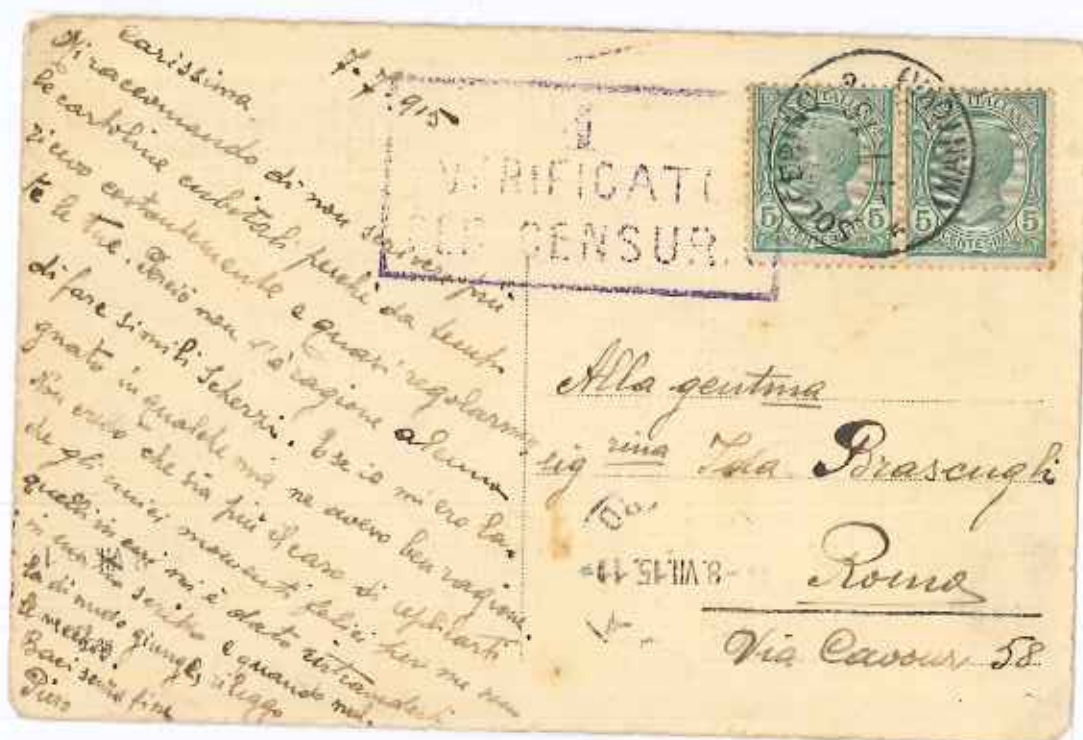 Carissima
7.7.915
Mi raccomando di non scriver più
le cartoline cubitali perchè da tempo
ricevo costantemente e quasi regolarmen
te le tue. Perciò non v'è ragione alcuna
di fare simili scherzi. E se io mi ero la
gnato in qualche mia ne avevo ben ragione.
Non credo che sia più il caso di
de gli unici momenti felici per me sono
quelli in cui mi è dato
in uno scritto e quando
di nuovo giunge, rileggo
le vecchie.
Baci senza fine
Piero
VERIFICATO
PER CENSURA
SOLFERINO
(MANTOVA)
5 5
5 5
Alla gentma
sig rina Ida Brascugli
Roma
Via Cavour 58
-8.VII.15.11